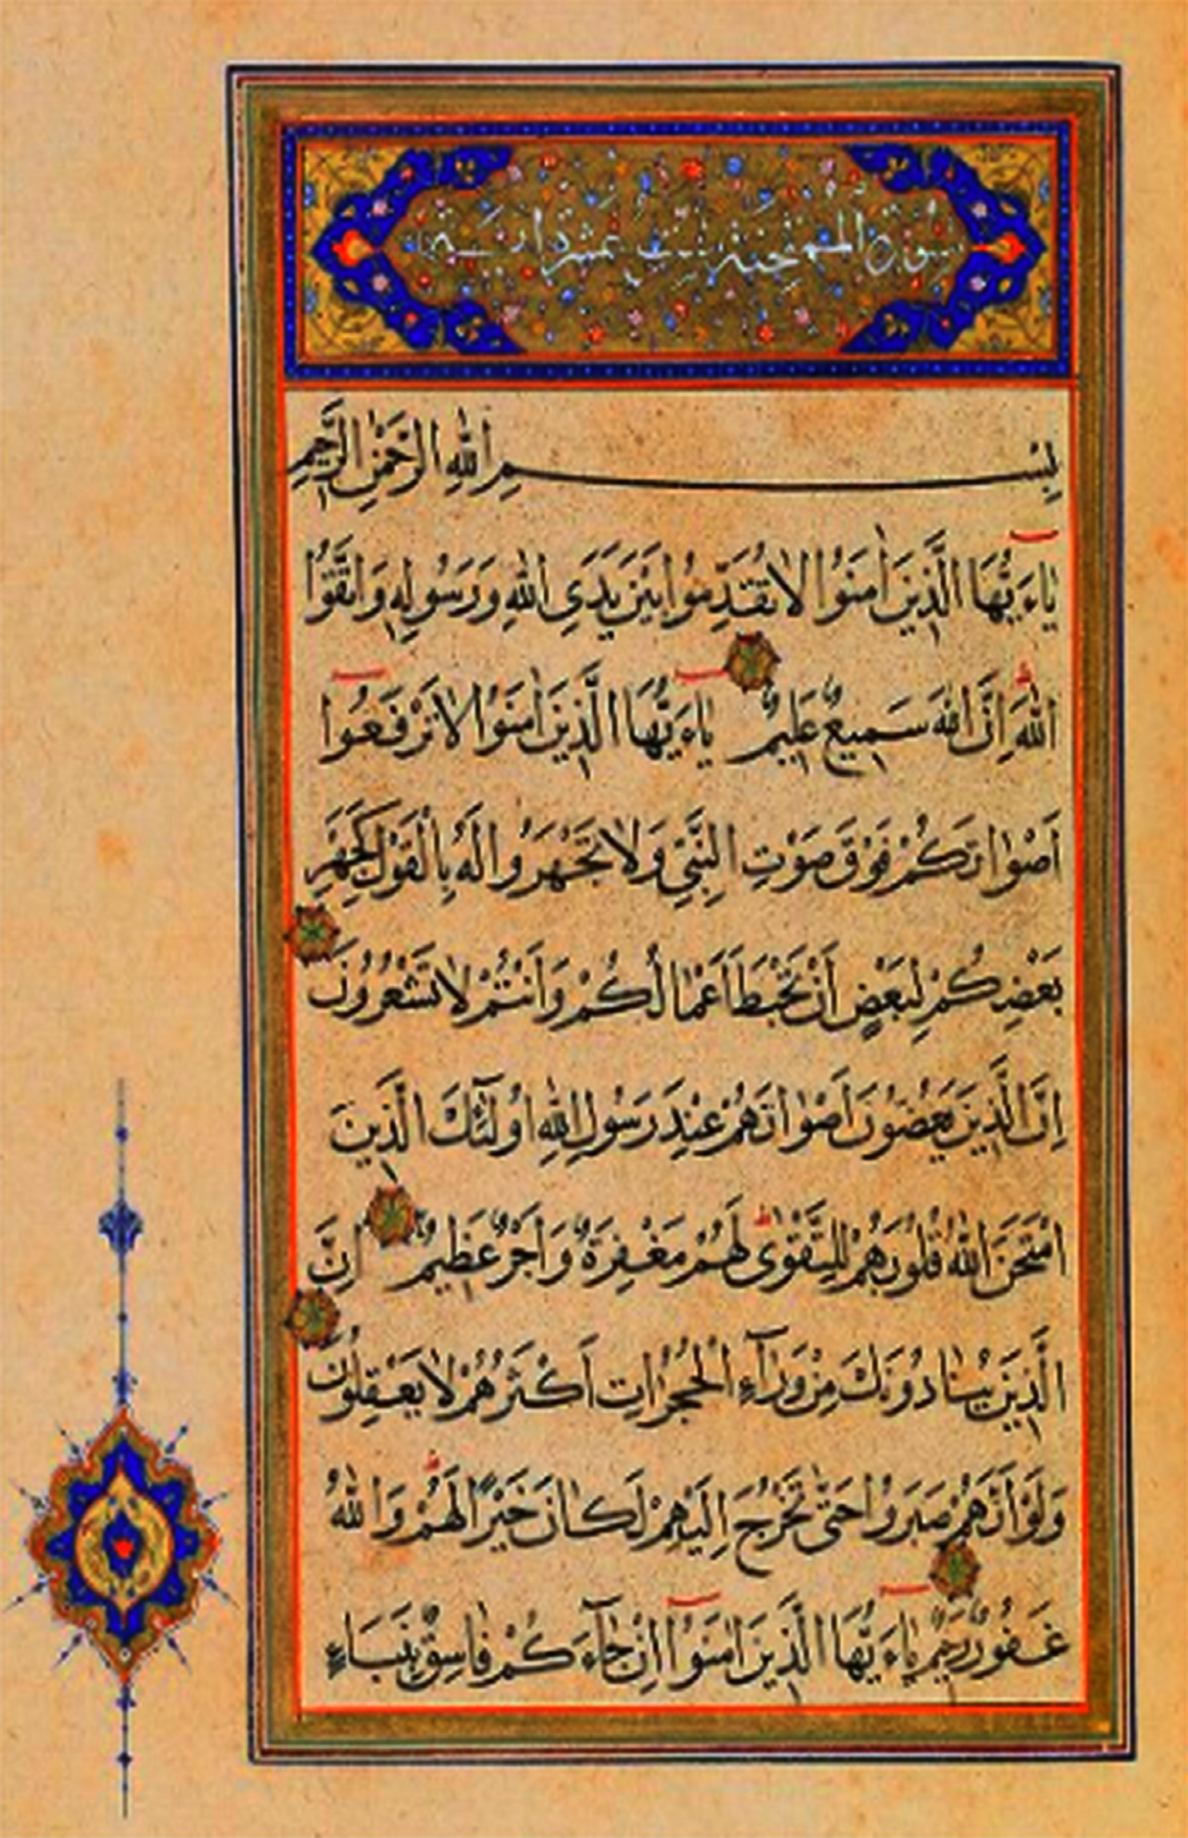 سورة الممتحنة عشرة اية
بِسْمِ اللهِ الرَّحْمٰنِ الرَّحِيمِ
يَاءَيُّهَا الَّذِينَ اٰمَنُوا لَا تُقَدِّمُوا بَيْنَ يَدَىِ اللهِ وَرَسُولِهِ وَاتَّقُوا
اللهَ اِنَّ اللهَ سَمِيعٌ عَلِيمٌ يَاءَيُّهَا الَّذِينَ اٰمَنُوا لَا تَرْفَعُوا
اَصْوَاتَكُمْ فَوْقَ صَوْتِ النَّبِيِّ وَلَا تَجْهَرُوا لَهُ بِالْقَوْلِ كَجَهْرِ
بَعْضِكُمْ لِبَعْضٍ اَنْ تَحْبَطَ اَعْمَالُكُمْ وَاَنْتُمْ لَا تَشْعُرُونَ
اِنَّ الَّذِينَ يَغُضُّونَ اَصْوَاتَهُمْ عِنْدَ رَسُولِ اللهِ اُولٰٓئِكَ الَّذِينَ
امْتَحَنَ اللهُ قُلُوبَهُمْ لِلتَّقْوٰى لَهُمْ مَغْفِرَةٌ وَاَجْرٌ عَظِيمٌ اِنَّ
الَّذِينَ يُنَادُونَكَ مِنْ وَرَآءِ الْحُجُرَاتِ اَكْثَرُهُمْ لَا يَعْقِلُونَ
وَلَوْ اَنَّهُمْ صَبَرُوا حَتّٰى تَخْرُجَ اِلَيْهِمْ لَكَانَ خَيْرًا لَهُمْ وَاللهُ
غَفُورٌ رَحِيمٌ يَاءَيُّهَا الَّذِينَ اٰمَنُوا اِنْ جَآءَكُمْ فَاسِقٌ بِنَبَاءٍ